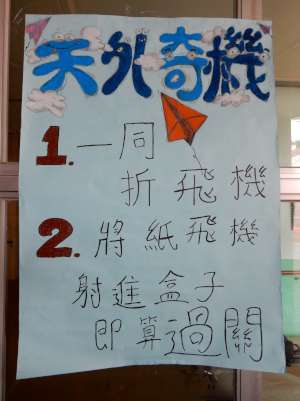 天外奇機
1. 一同
折飛機
2. 將紙飛機
射進盒子
即算過關